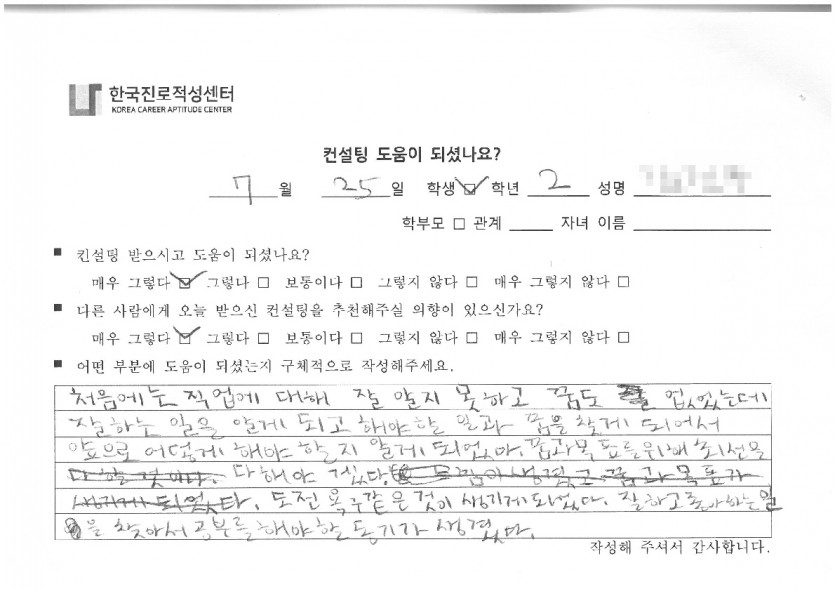 한국진로적성센터
KOREA CAREER APTITUDE CENTER
컨설팅 도움이 되셨나요?
7 월 25 일 학생 ☑ 학년 2 성명
학부모 □ 관계 자녀 이름
■ 컨설팅 받으시고 도움이 되셨나요?
매우 그렇다 ☑ 그렇다 □ 보통이다 □ 그렇지 않다 □ 매우 그렇지 않다 □
■ 다른 사람에게 오늘 받으신 컨설팅을 추천해주실 의향이 있으신가요?
매우 그렇다 ☑ 그렇다 □ 보통이다 □ 그렇지 않다 □ 매우 그렇지 않다 □
■ 어떤 부분에 도움이 되셨는지 구체적으로 작성해주세요.
처음에는 직업에 대해 잘 알지 못하고 꿈도 없었는데
잘하는 일을 알게 되고 해야할 일과 꿈을 찾게 되어서
앞으로 어떻게 해야 할지 알게 되었다. 꿈과 목표를 위해 최선을
다할 것이다. 다해야 겠다. 생겼고 꿈과 목표가
생기게 되었다. 도전 욕구같은 것이 생기게 되었다. 잘하고 좋아하는 일
을 찾아서 공부를 해야할 동기가 생겼다.
작성해 주셔서 감사합니다.